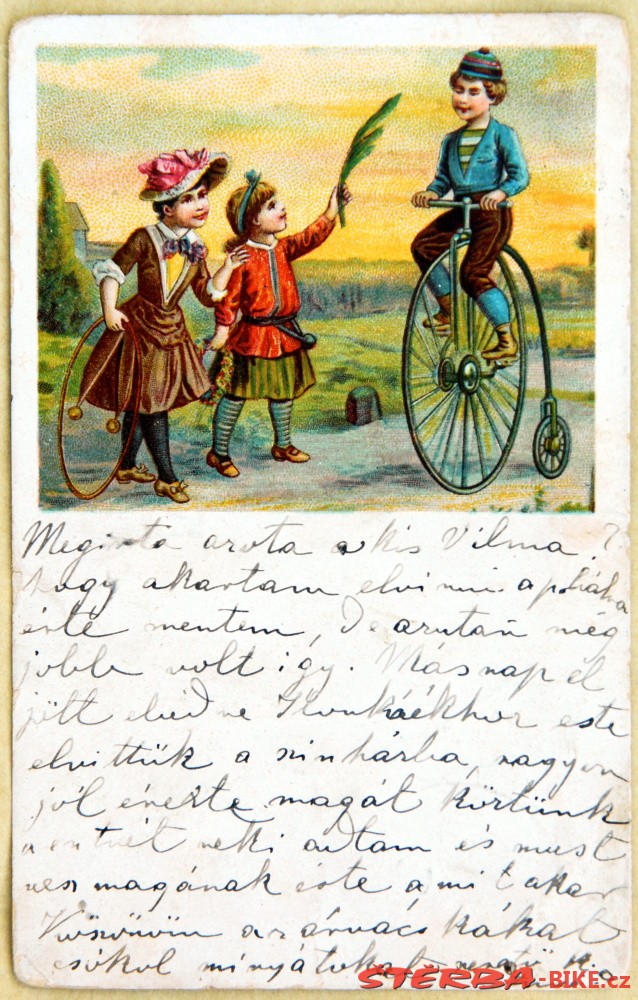 Megirta azota a kis Vilma?
hogy akartam elvinni a
érte mentem, De azután még
jobb volt így. Másnap el
jött ebédre Ilonkáékhoz este
elvittük a szinházba, nagyon
jól érezte magát köztünk
neki adtam és most
vesz magának érte a mit akar
Köszönöm az árvácskákat
csókol minyátokat
ŠTĚRBA-BIKE.cz